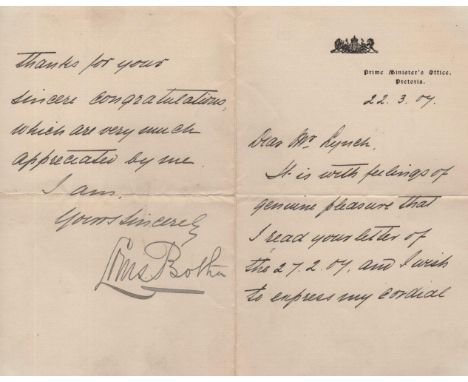 Prime Minister's Office,
Pretoria.
22.3.07.
Dear Mr Lynch.
It is with feelings of
genuine pleasure that
I read your letter of
the 27.2.07, and I wish
to express my cordial
thanks for your
sincere congratulations,
which are very much
appreciated by me.
I am.
Yours sincerely
Louis Botha